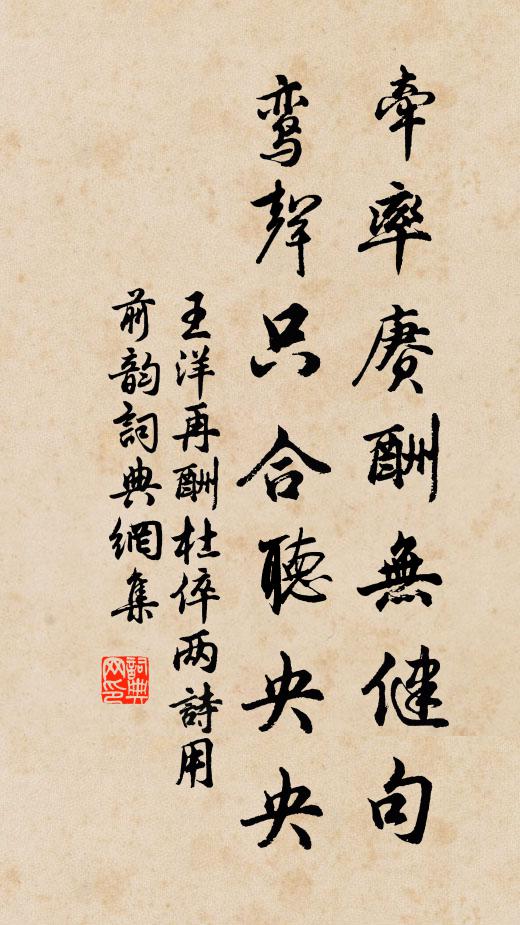 牵率赓酬無健句
鸾聲只合聽央央
王洋再酬杜倅两詩用
前韵詞典網集
詞典
网印